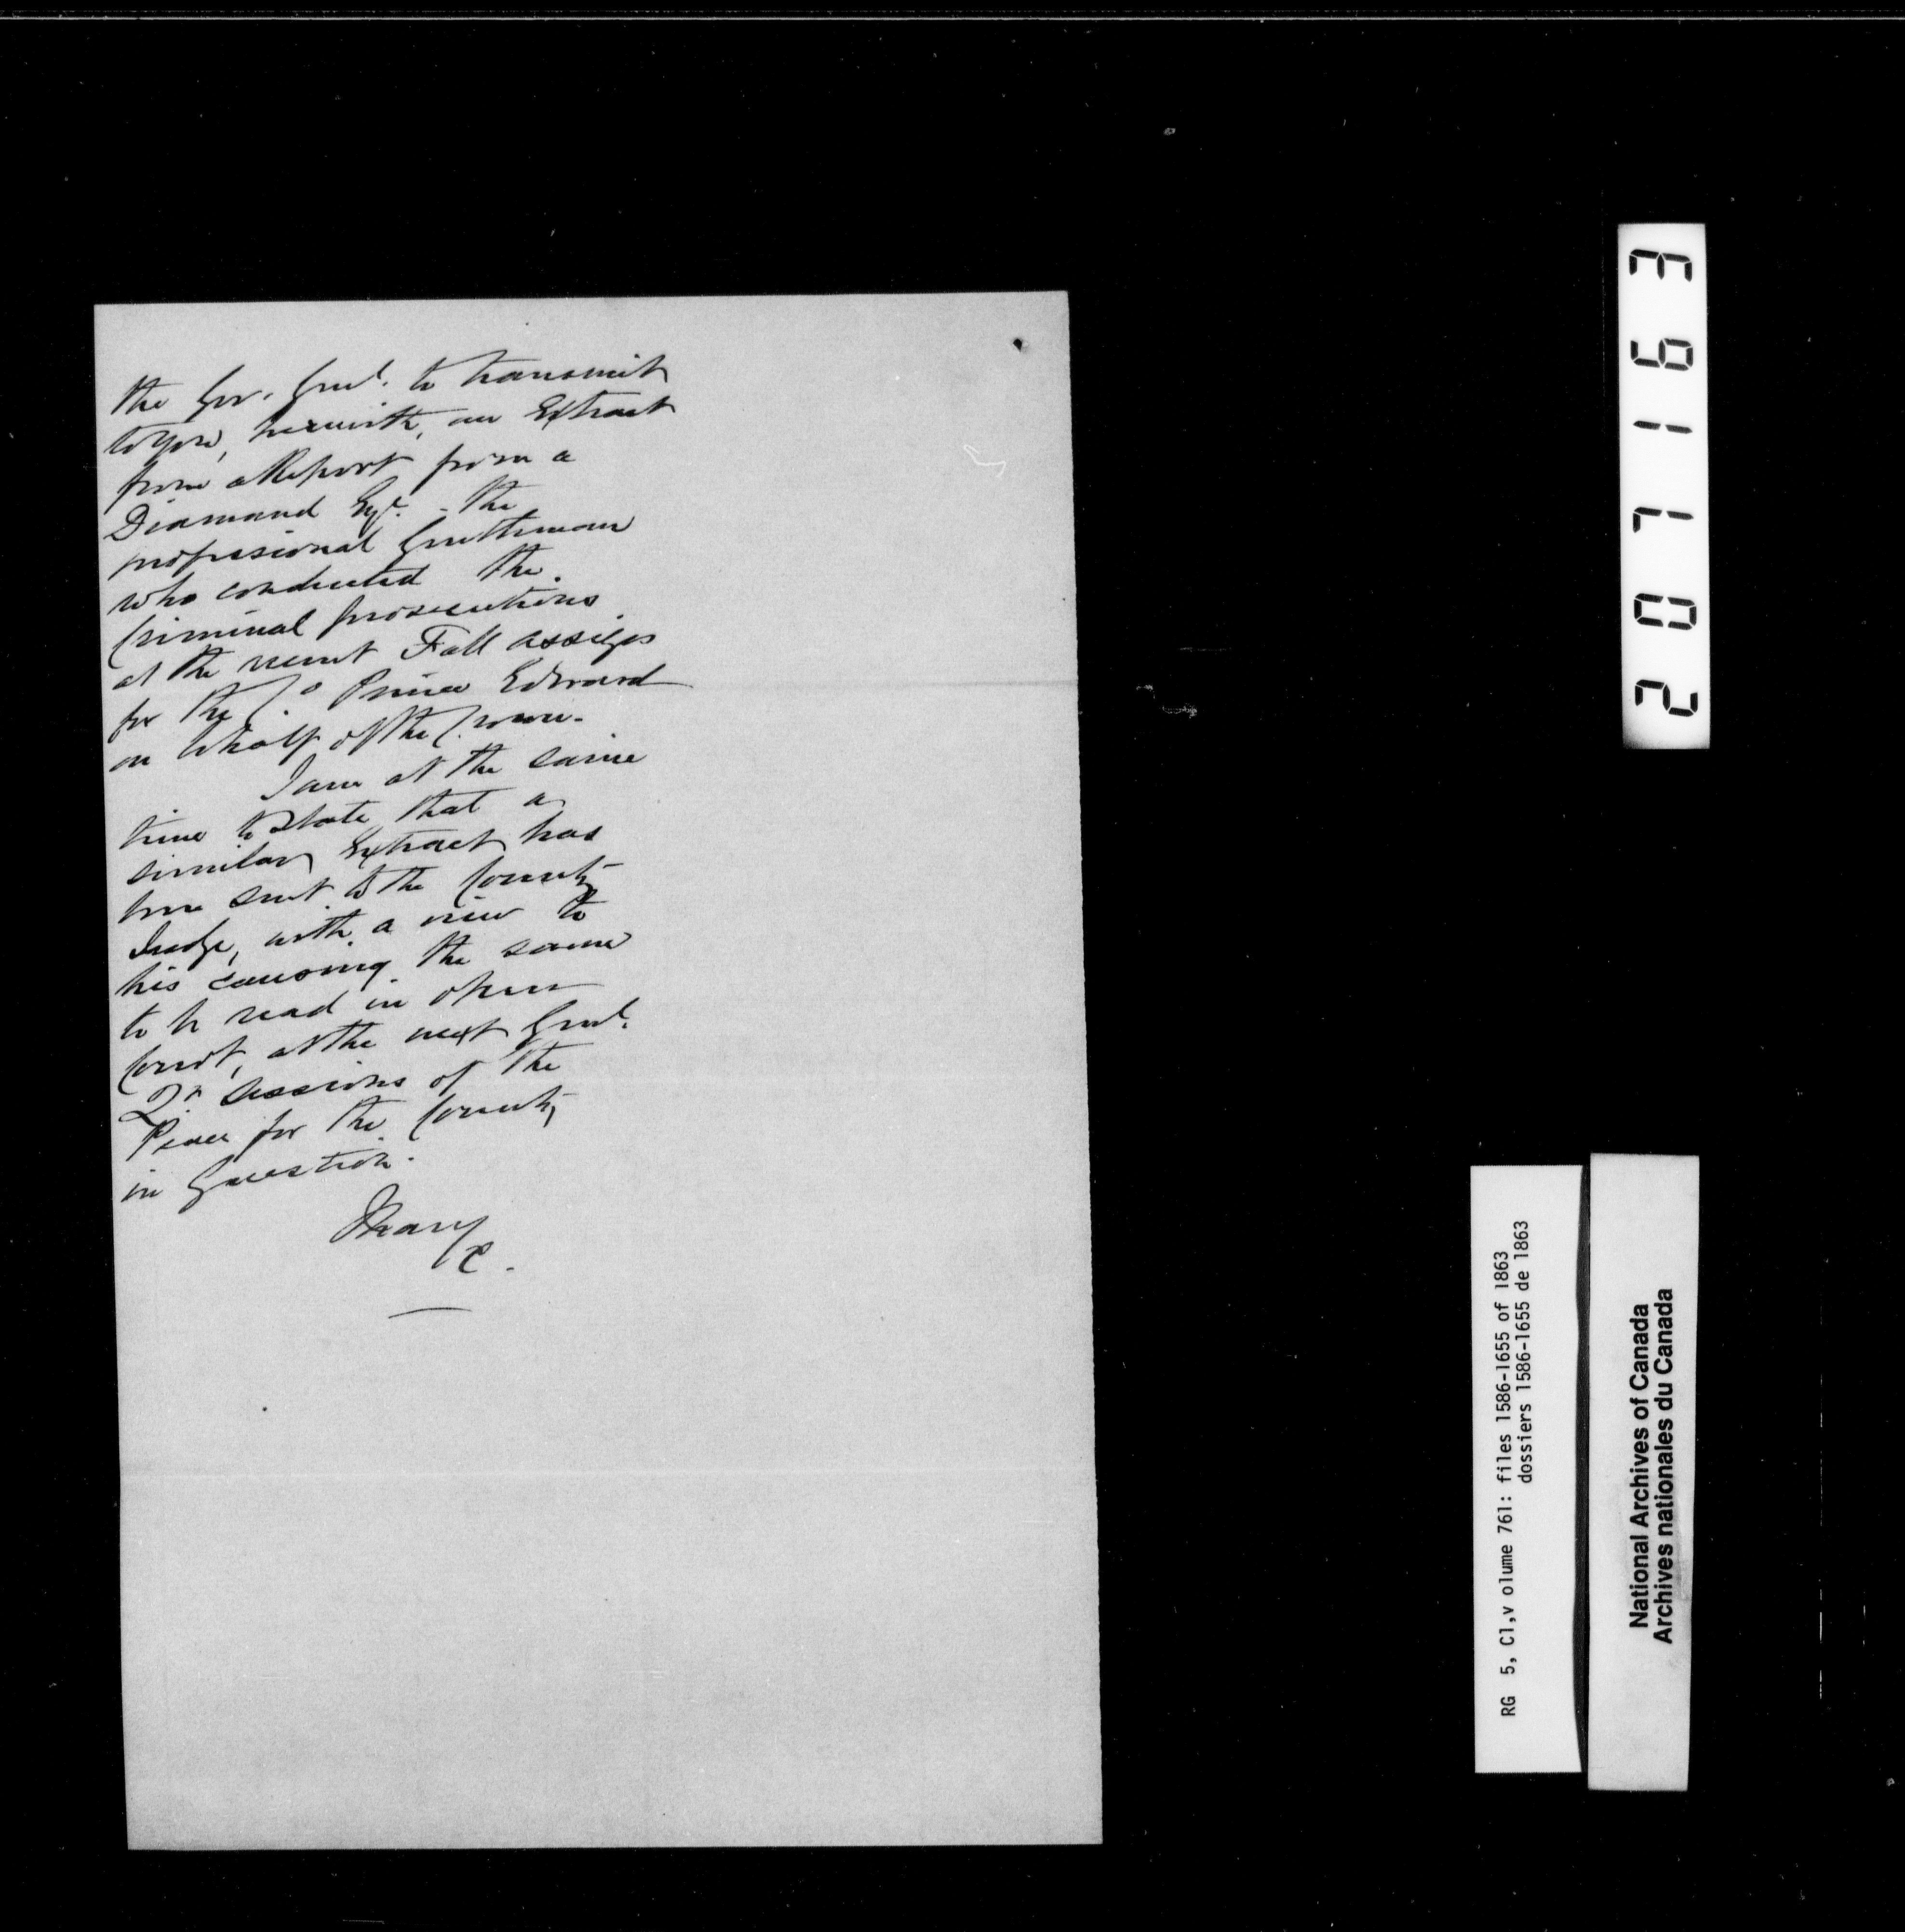 the Gov. Genl. to transmit
to you, herewith, an Extract
from a Report from A
Diamond Esqr. - the
professional Gentleman
who conducted the
Criminal prosecutions
at the recent Fall assizes
for the Co. Prince Edward
on behalf of the Crown.
I am at the same
time to state that a
similar Extract has
been sent to the County
Judge, with a view to
his causing the same
to be read in open
Court, at the next Genl.
Qr. Sessions of the
Peace for the County
in Question.
I have
&c.
207163
RG 5, C1,v olume 761: files 1586-1655 of 1863
dossiers 1586-1655 de 1863
National Archives of Canada
Archives nationales du Canada